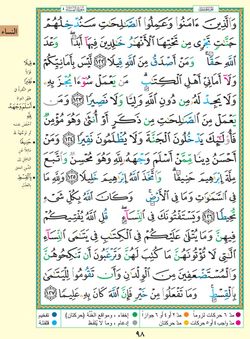 وَالَّذِينَ ءَامَنُوا وَعَمِلُوا الصَّالِحَاتِ سَنُدْخِلُهُمْ
جَنَّاتٍ تَجْرِي مِن تَحْتِهَا الْأَنْهَارُ خَالِدِينَ فِيهَا أَبَدًا ۖ وَعْدَ
اللَّهِ حَقًّا ۚ وَمَنْ أَصْدَقُ مِنَ اللَّهِ قِيلًا ١٢٢ لَّيْسَ بِأَمَانِيِّكُمْ
وَلَا أَمَانِيِّ أَهْلِ الْكِتَابِ ۗ مَن يَعْمَلْ سُوءًا يُجْزَ بِهِ
وَلَا يَجِدْ لَهُ مِن دُونِ اللَّهِ وَلِيًّا وَلَا نَصِيرًا ١٢٣
وَمَن يَعْمَلْ مِنَ الصَّالِحَاتِ مِن ذَكَرٍ أَوْ أُنثَىٰ وَهُوَ مُؤْمِنٌ
فَأُولَٰئِكَ يَدْخُلُونَ الْجَنَّةَ وَلَا يُظْلَمُونَ نَقِيرًا ١٢٤ وَمَنْ
أَحْسَنُ دِينًا مِّمَّنْ أَسْلَمَ وَجْهَهُ لِلَّهِ وَهُوَ مُحْسِنٌ وَاتَّبَعَ
مِلَّةَ إِبْرَاهِيمَ حَنِيفًا ۗ وَاتَّخَذَ اللَّهُ إِبْرَاهِيمَ خَلِيلًا ١٢٥ وَلِلَّهِ مَا
فِي السَّمَاوَاتِ وَمَا فِي الْأَرْضِ ۚ وَكَانَ اللَّهُ بِكُلِّ شَيْءٍ
مُّحِيطًا ١٢٦ وَيَسْتَفْتُونَكَ فِي النِّسَاءِ ۖ قُلِ اللَّهُ يُفْتِيكُمْ
فِيهِنَّ وَمَا يُتْلَىٰ عَلَيْكُمْ فِي الْكِتَابِ فِي يَتَامَى النِّسَاءِ
اللَّاتِي لَا تُؤْتُونَهُنَّ مَا كُتِبَ لَهُنَّ وَتَرْغَبُونَ أَن تَنكِحُوهُنَّ
وَالْمُسْتَضْعَفِينَ مِنَ الْوِلْدَانِ وَأَن تَقُومُوا لِلْيَتَامَىٰ
بِالْقِسْطِ ۚ وَمَا تَفْعَلُوا مِنْ خَيْرٍ فَإِنَّ اللَّهَ كَانَ بِهِ عَلِيمًا ١٢٧
٩٨